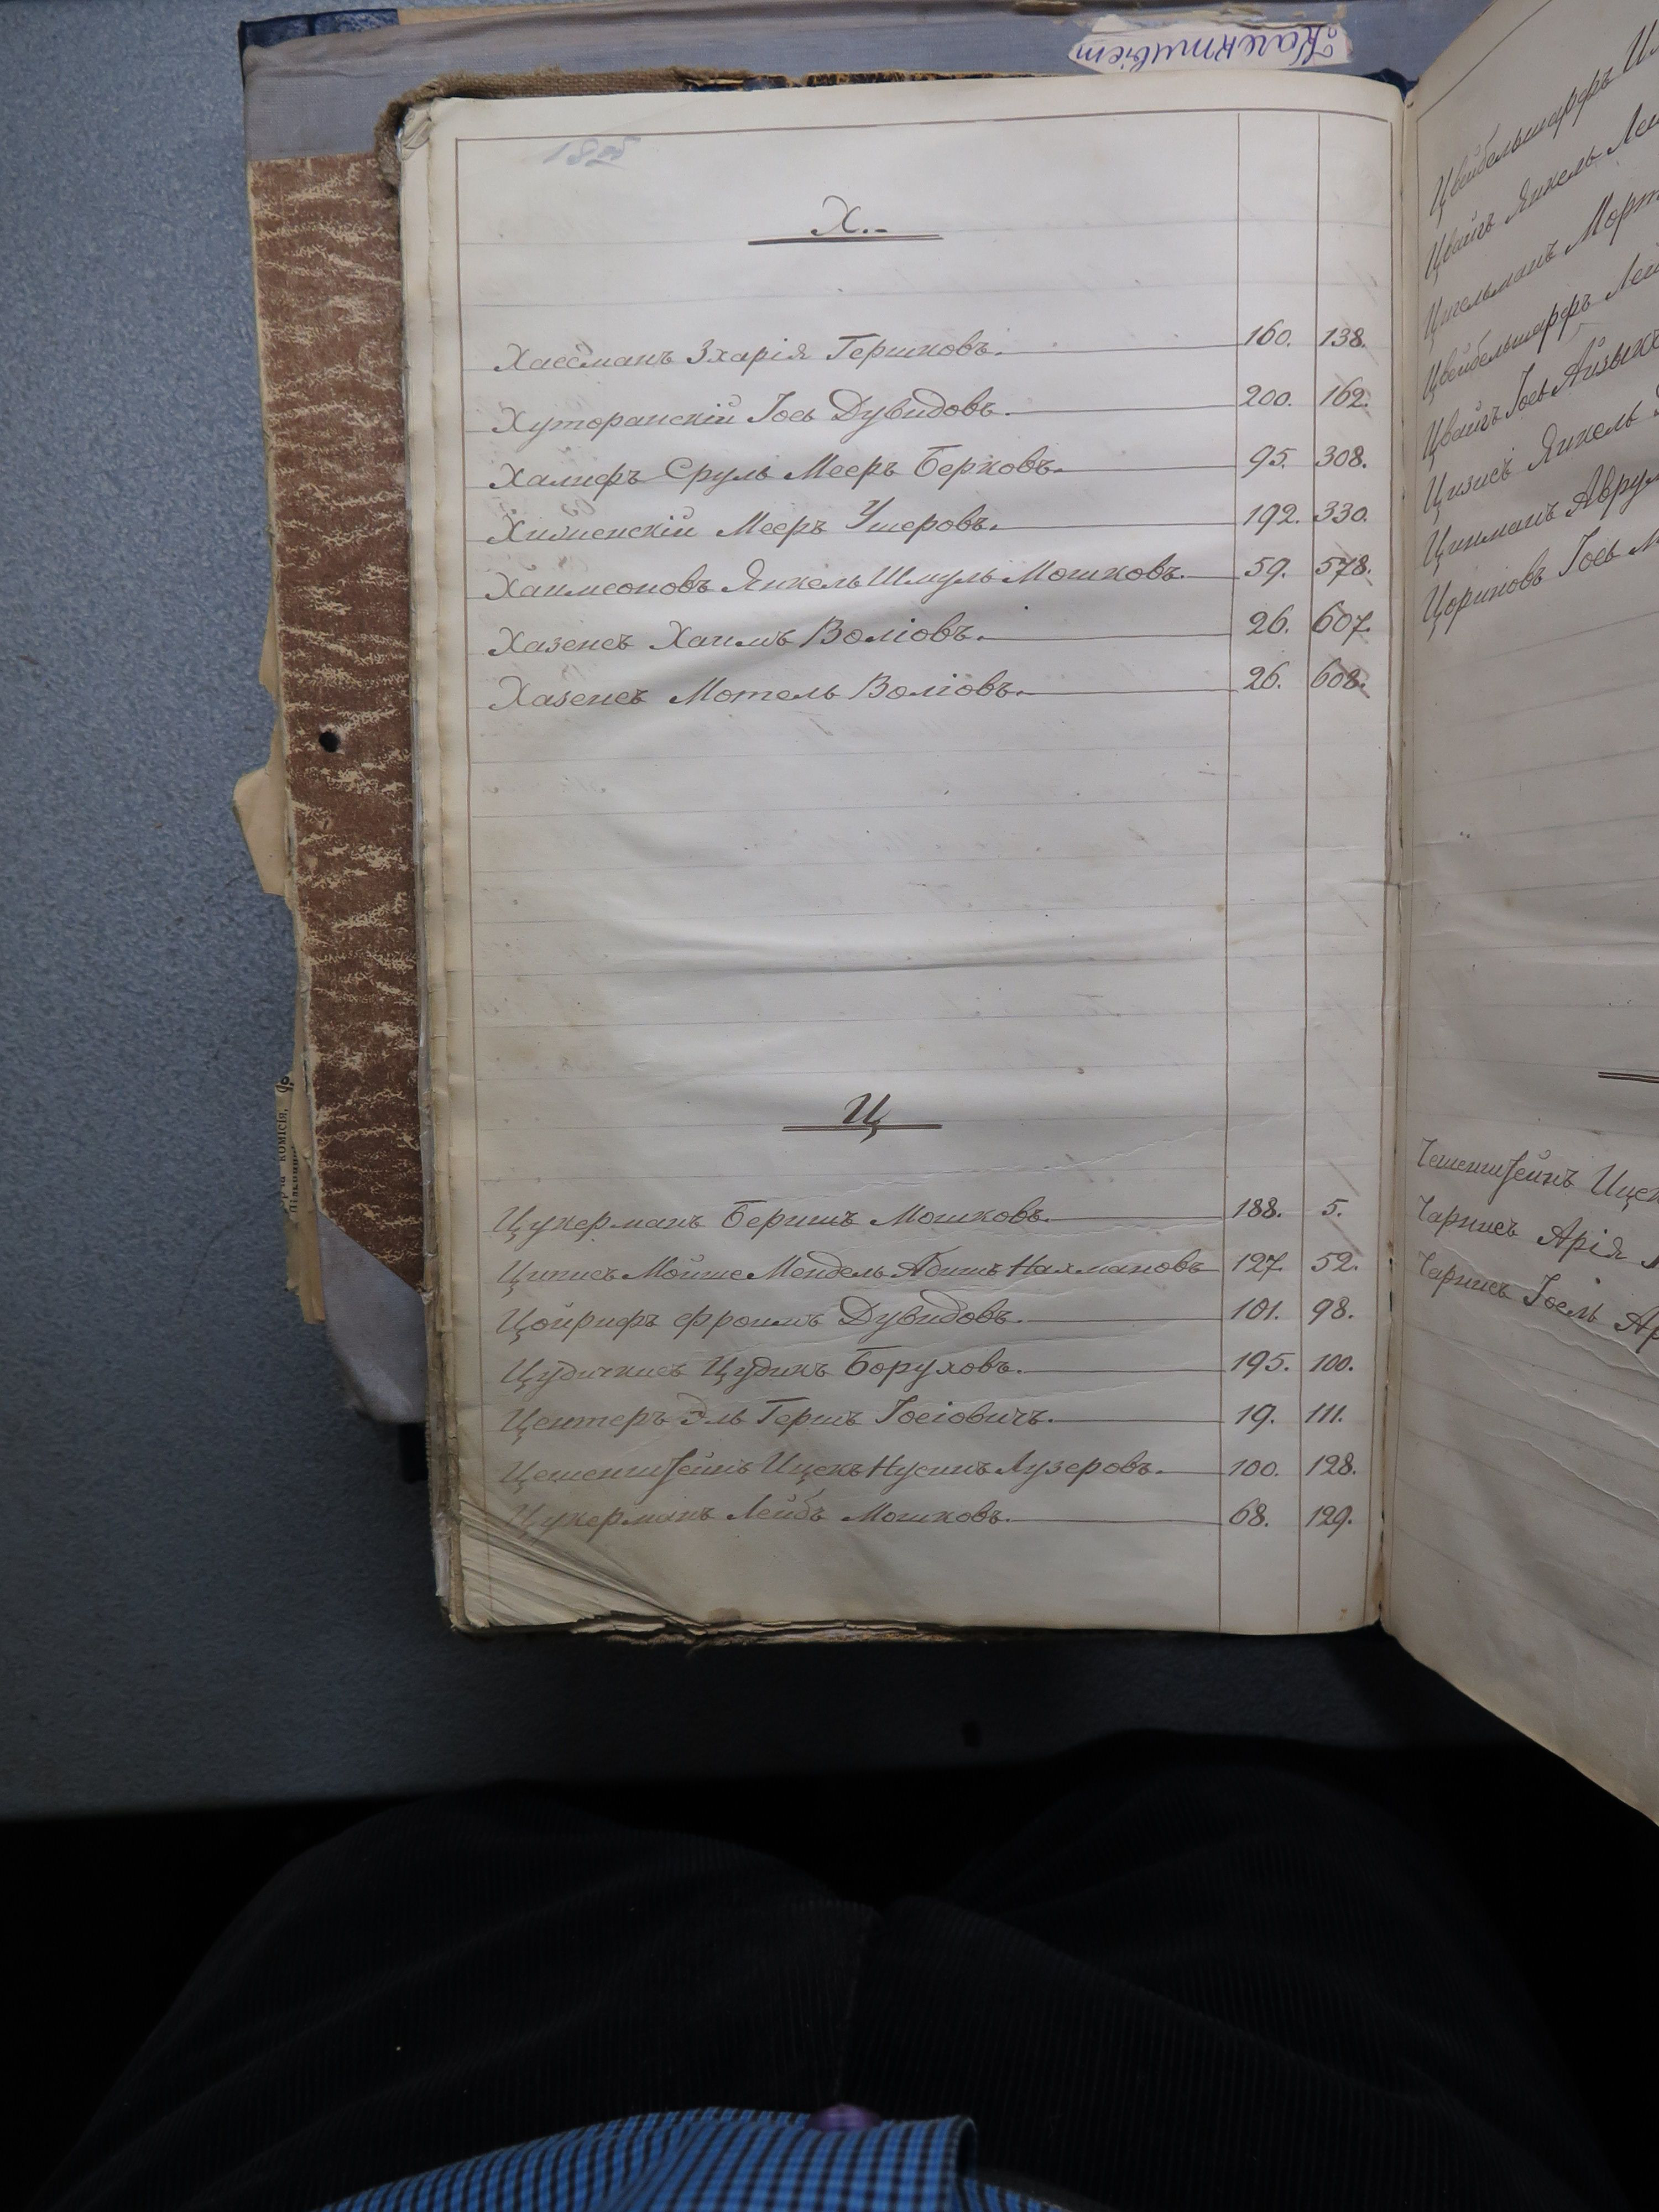 Х.
Хассманъ Зхарія Гершковъ. 160. 138.
Хуторанскій Іось Дувидовъ. 200. 162.
Халифъ Сруль Мееръ Берковъ. 95. 308.
Мееръ Ушеровъ. 192. 330.
Хаимсоновъ Янкель Шмуль Мошковъ. 59. 578.
Хазенсъ Хаимъ Волiовъ. 26. 607.
Хазенсъ Мотель Волiовъ. 26. 608.
Ц
Цукерманъ Беришъ Мошковъ. 188. 5.
Циписъ Мойше Мендель Абишъ Нахмановъ 127. 52.
Цойрифъ Фроимъ Дувидовъ. 101. 98.
Цудичкисъ Цудикъ Боруховъ. 195. 100.
Центеръ Эль Гершъ Іосіовичъ. 19. 111.
Цешенштейнъ Ицекъ Нусинъ Лузеровъ. 100. 128.
Цукерманъ Лейбъ Мошковъ. 68. 129.
Цвейбельшарфъ
Цвайгъ Янкель
Цительманъ
Цвейбельшарфъ
Цвайгъ Іось
Цизисъ Янкель
Цинманъ
Цориновъ Іось
Чешенштейнъ
Чарнисъ Арія
Чарнисъ Іоель